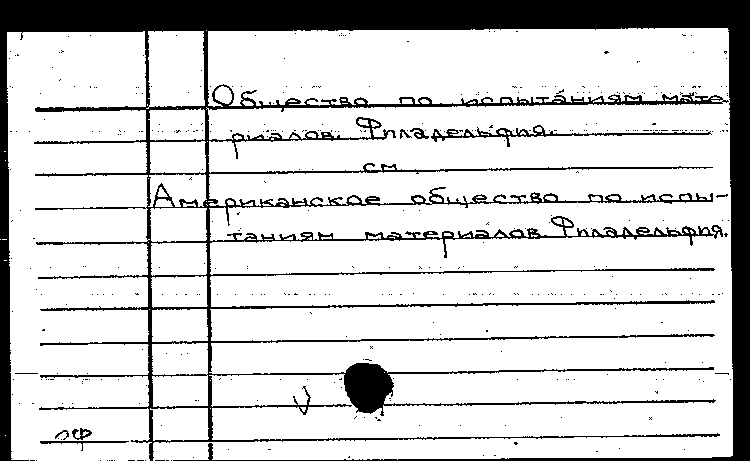 Общество по испытаниям мате
риалов. Филадельфия.
см.
Американское общество по испы-
таниям материалов. Филадельфия.